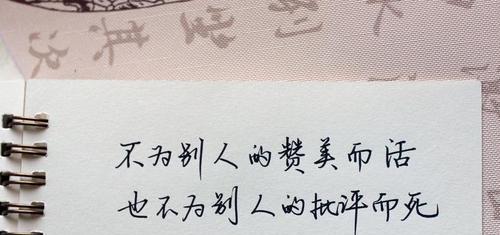 其次
不为别人的赞美而活
也不为别人的批评而死